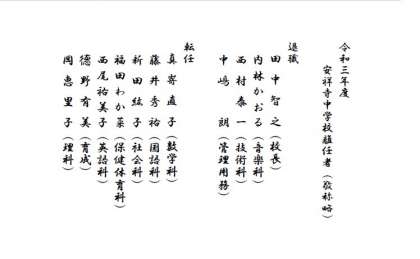 令和三年度
安祥寺中学校離任者(敬称略)
退職
田中智之(校長)
内林かおる(音楽科)
西村泰一(技術科)
中嶋朗(管理用務)
転任
真嵜直子(数学科)
藤井秀裕(国語科)
新田紘子(社会科)
福田わか菜(保健体育科)
西尾裕美子(英語科)
徳野有美(育成)
岡恵里子(理科)